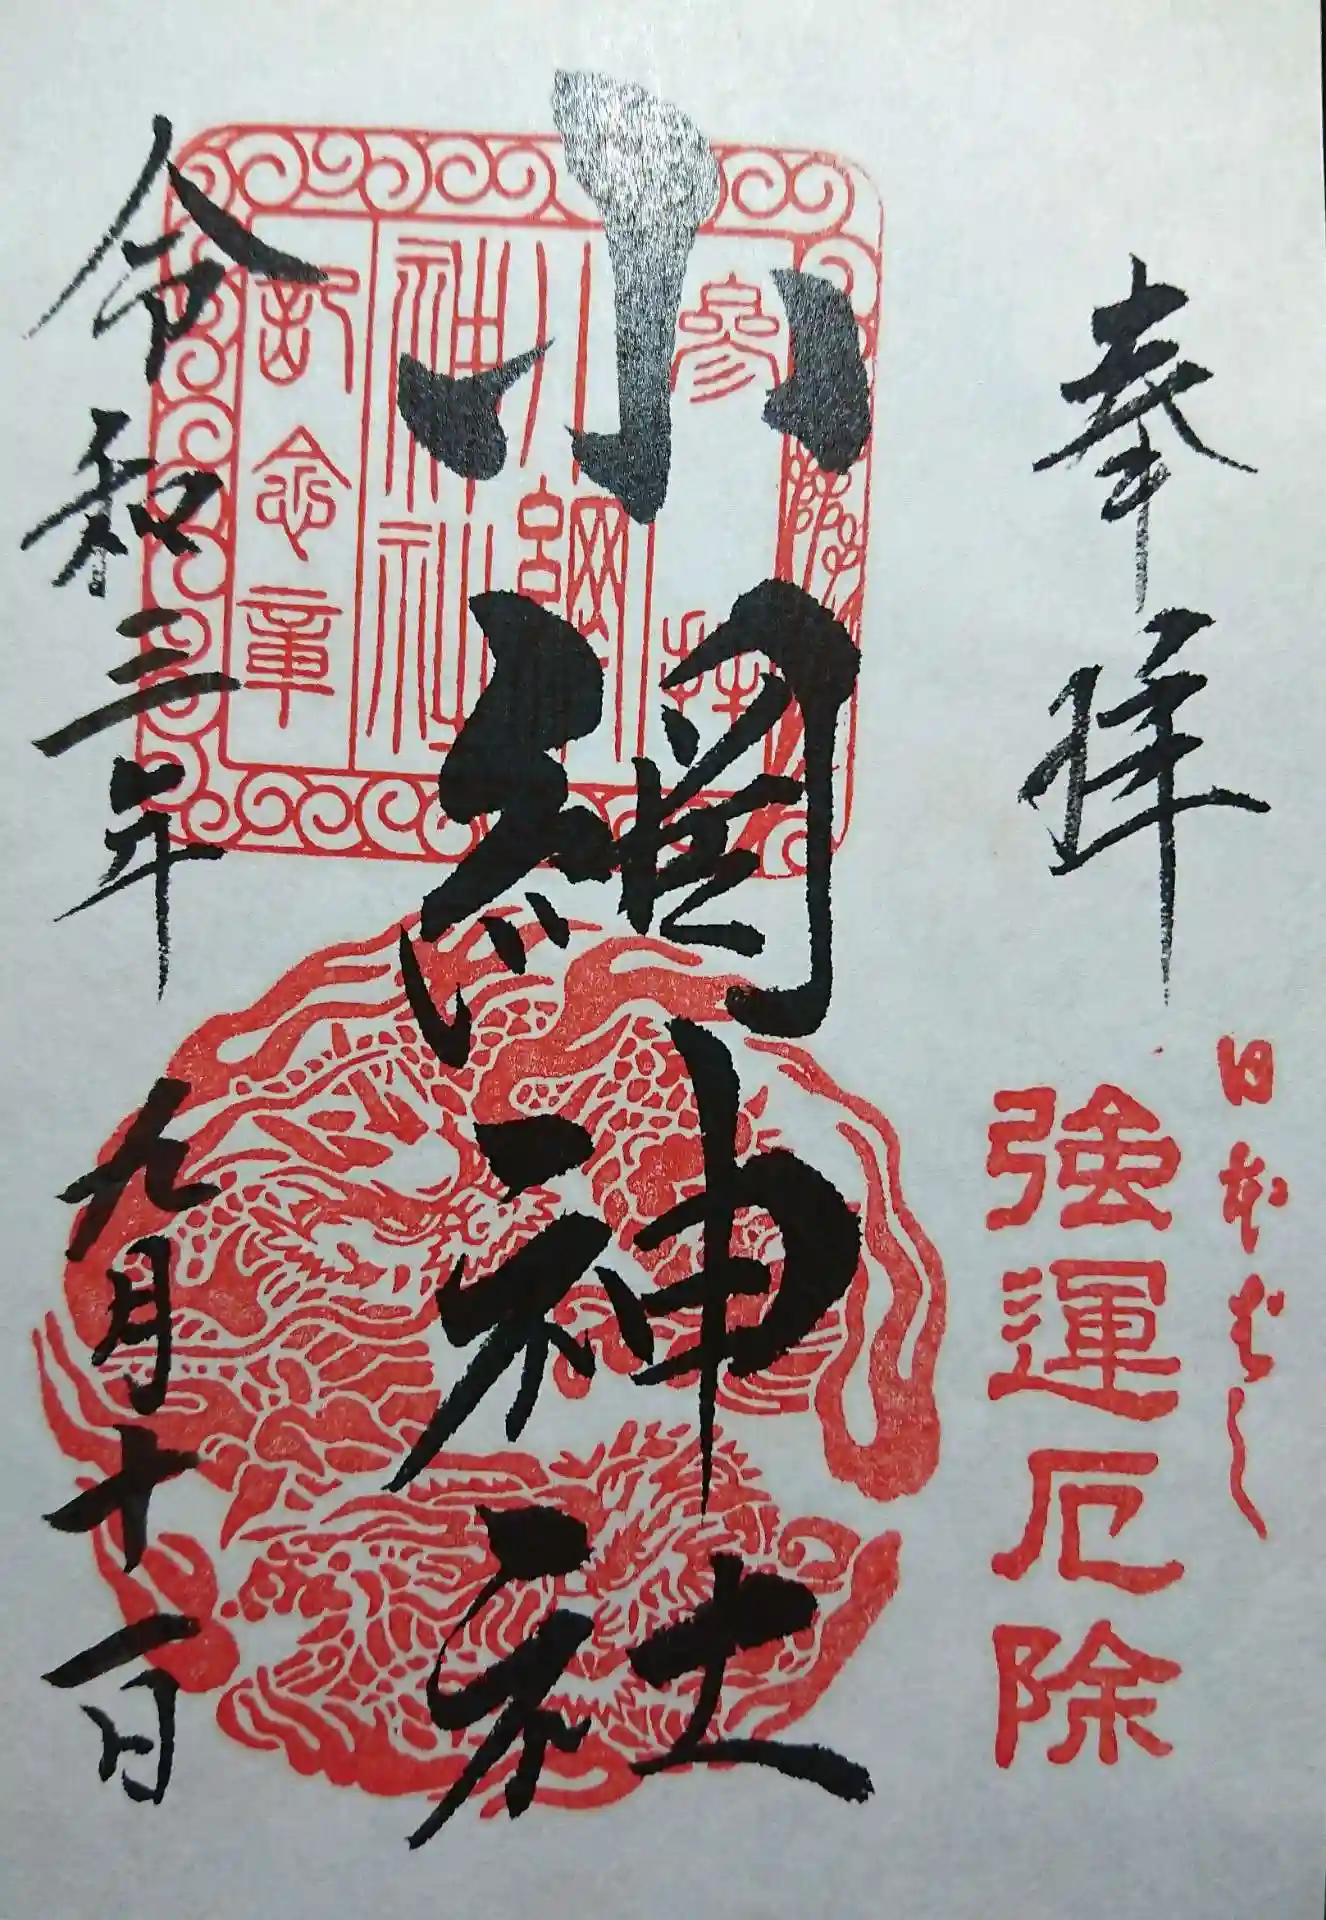 奉拝
日本ばし
強運厄除
小網神社
參拝
小網
神社
記念章
令和三年九月十一日